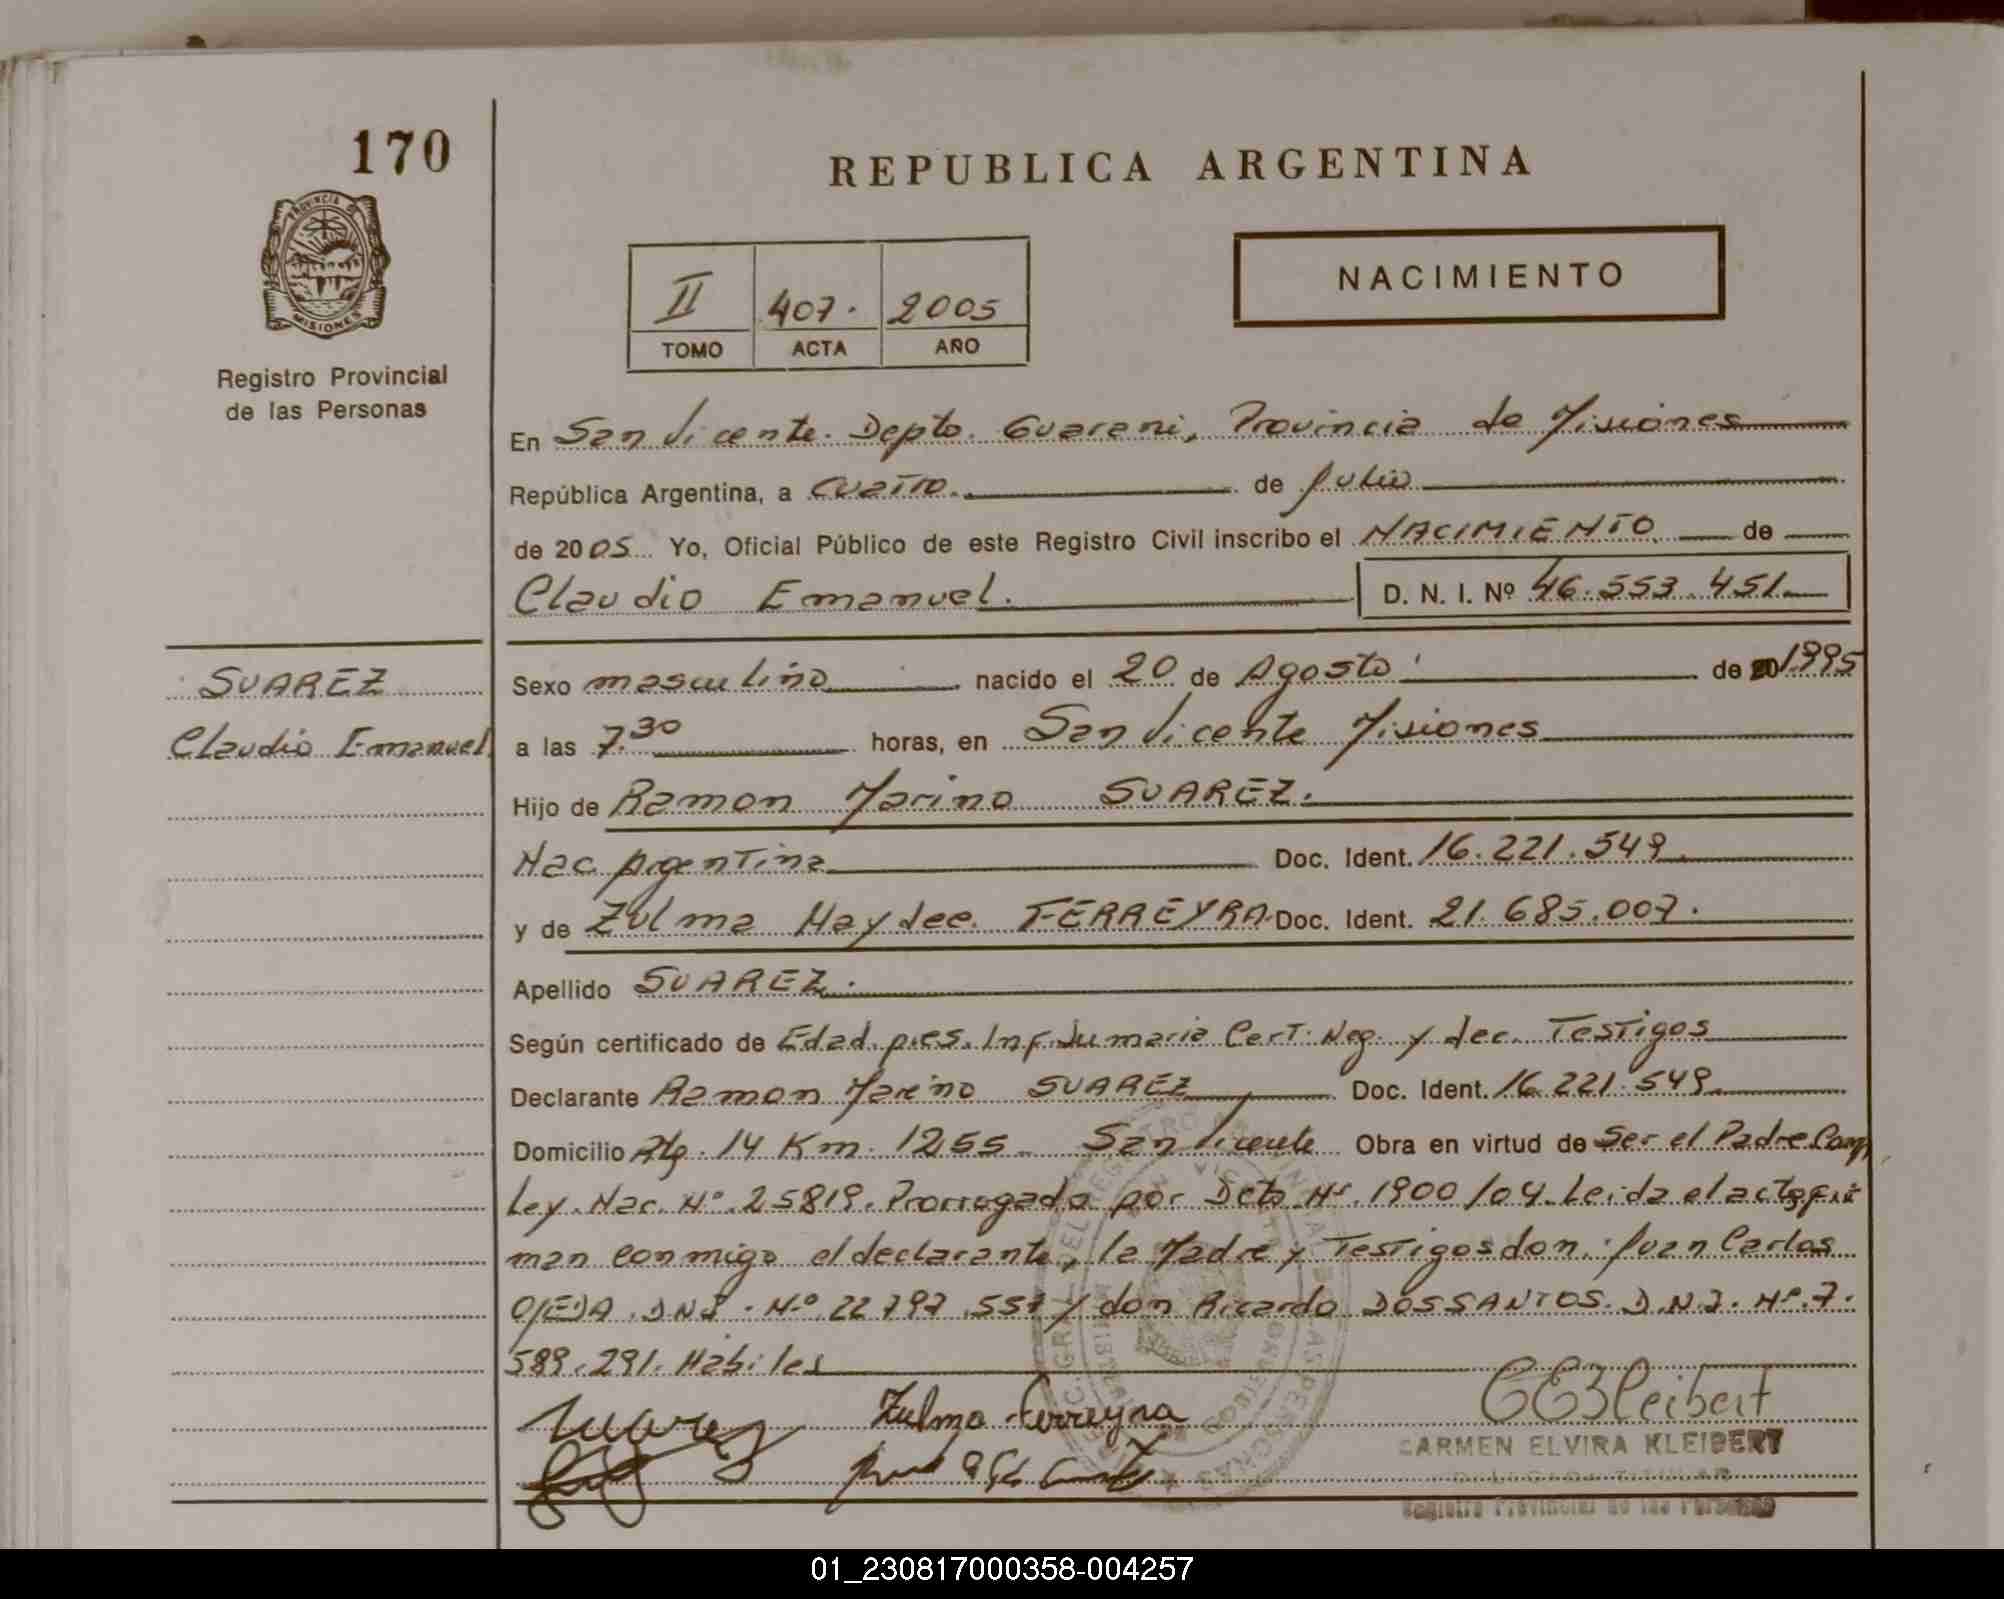 170
REPUBLICA ARGENTINA
PROVINCIA DE
MISIONES
Registro Provincial
de las Personas
II 407. 2005
TOMO ACTA AÑO
NACIMIENTO
En San Vicente. Depto. Guarani, Provincia de Misiones
República Argentina, a cuatro. de Julio
de 2005 Yo, Oficial Público de este Registro Civil inscribo el NACIMIENTO de
Claudio Emanuel. D. N. I. Nº 46.553.451.
SUAREZ
Claudio Emanuel
Sexo masculino nacido el 20 de Agosto de 1995
a las 7.30 horas, en San Vicente Misiones
Hijo de Ramon Marino SUAREZ.
Nac. Argentina Doc. Ident. 16.221.549
y de Zulma Haydee. FERREYRA. Doc. Ident. 21.685.007.
Apellido SUAREZ.
Según certificado de Edad. pres. Inf. Sumaria Cert. Neg. y dec. Testigos
Declarante Ramon Marino SUAREZ Doc. Ident. 16.221.549
Domicilio 14 Km. 1255 San Vicente Obra en virtud de Ser el Padre
Ley. Nac. Nº 25819. Prorrogado por Dcto Nº. 1900/04. Leida el acta fir
man conmigo el declarante, la Madre y Testigos don. Juan Carlos
OJEDA. D.N.I. Nº 22797.557 y don Ricardo DOSSANTOS. D.N.I. Nº. 7.
589.291. Habiles
Suarez Zulma Ferreyra CEKleibert
CARMEN ELVIRA KLEIBERT
Registro Provincial de las Personas
01_230817000358-004257